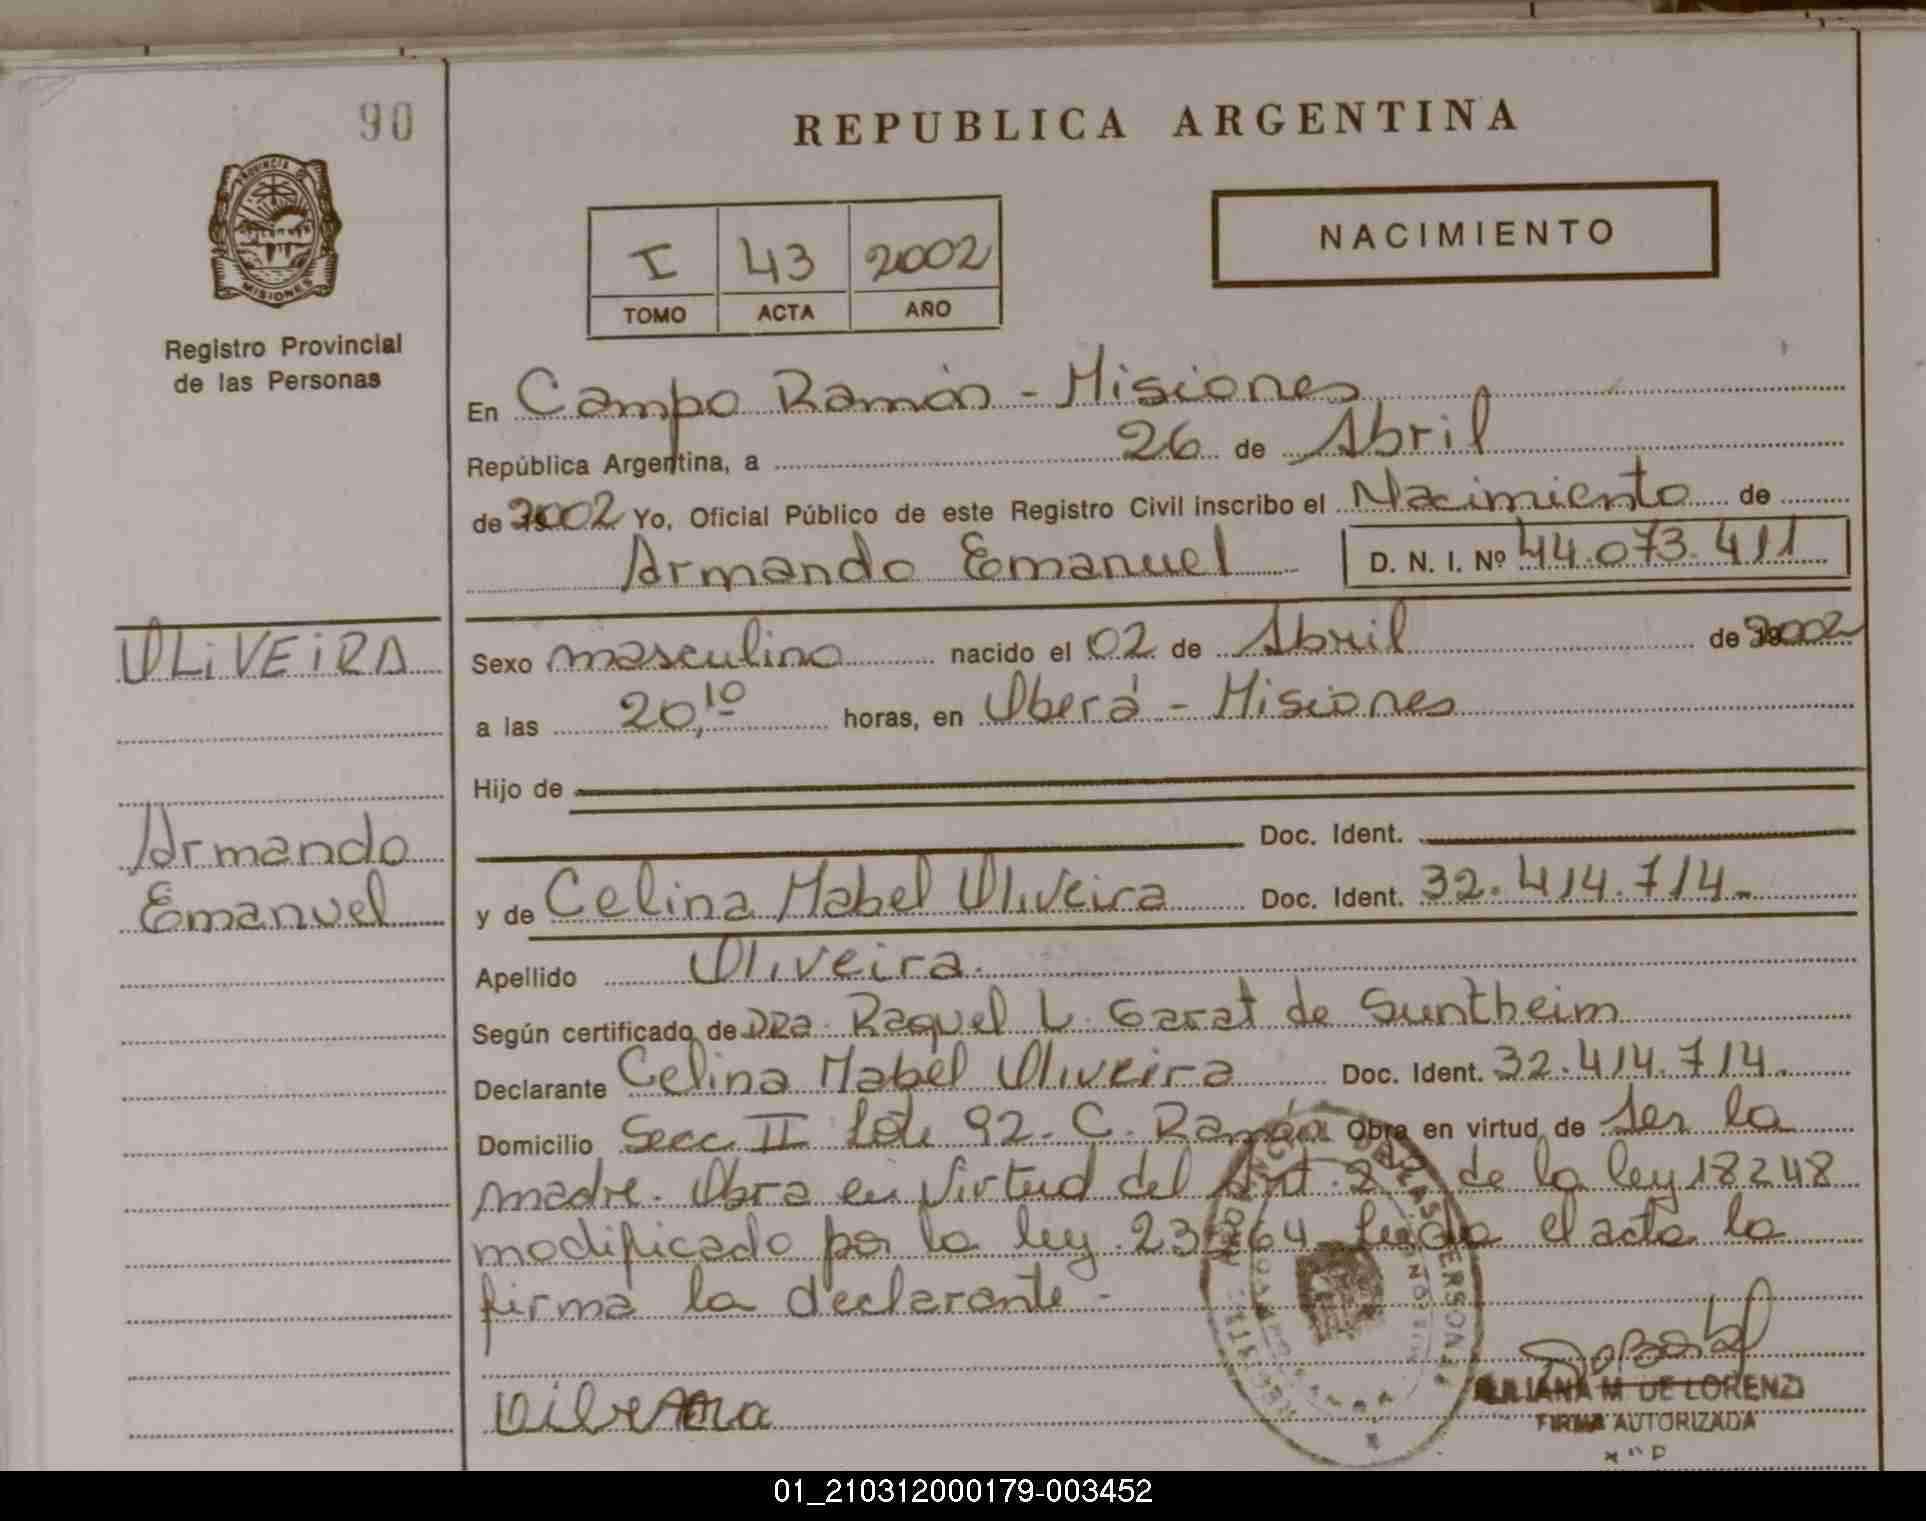 90
REPUBLICA ARGENTINA
PROVINCIA D
MISIONES
Registro Provincial
de las Personas
I 43 2002
TOMO ACTA AÑO
NACIMIENTO
En Campo Ramón - Misiones
República Argentina, a 26 de Abril
de 2002 Yo, Oficial Público de este Registro Civil inscribo el Nacimiento de
Armando Emanuel D. N. I. Nº 44.073.411
OLIVEIRA
Sexo masculino nacido el 02 de Abril de 2002
a las 20,10 horas, en Oberá - Misiones
Hijo de
Doc. Ident.
Armando
Emanuel
y de Celina Mabel Oliveira Doc. Ident. 32.414.714.-
Apellido Oliveira.
Según certificado de DRa. Raquel L. Garat de Suntheim
Declarante Celina Mabel Oliveira Doc. Ident. 32.414.714.
Domicilio Secc II Lote 92. C. Ramón Obra en virtud de ser la
madre. Obra en virtud del Art. 2 de la ley 18248
modificado por la ley 23264 leida el acta la
firma la declarante -
JULIANA M DE LORENZI
FIRMA AUTORIZADA
01_210312000179-003452